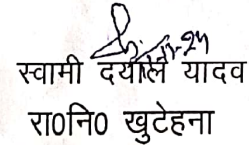 स्वामी दयाल यादव
रा0नि0 खुटेहना